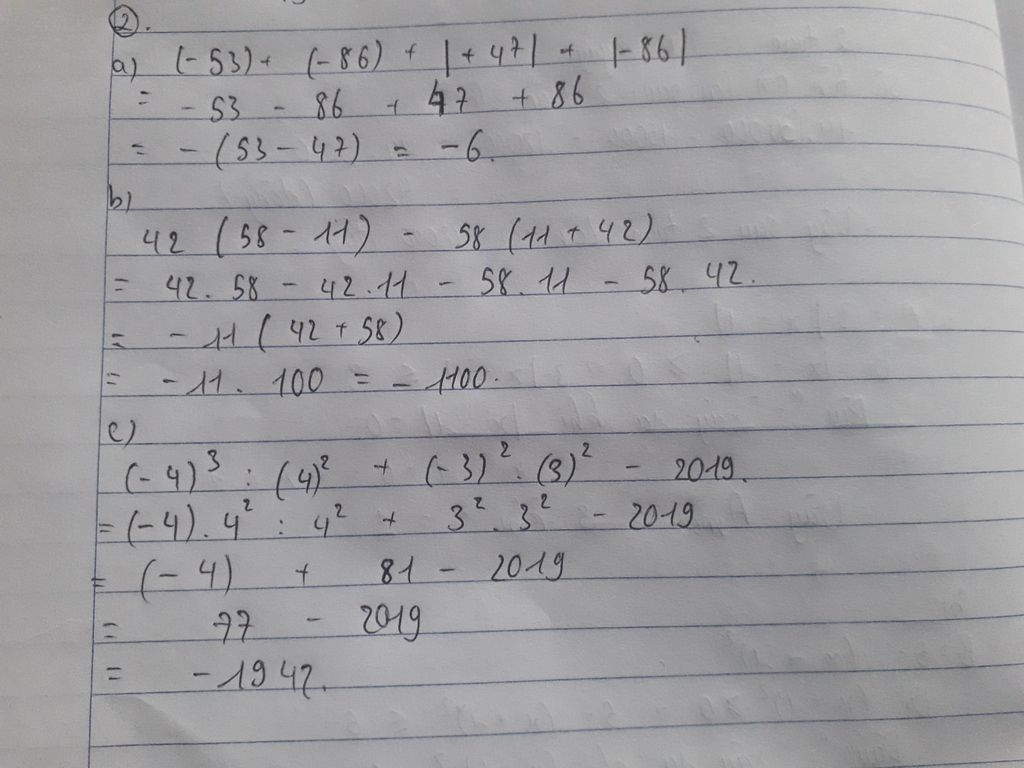 ②.
a) (-53) + (-86) + |+47| + |-86|
= -53 - 86 + 47 + 86
= -(53 - 47) = -6.
b)
42 (58 - 11) - 58 (11 + 42)
= 42.58 - 42.11 - 58.11 - 58.42.
= -11 (42 + 58)
= -11. 100 = -1100.
c)
(-4)³ : (4)² + (-3)² . (3)² - 2019.
= (-4). 4² : 4² + 3². 3² - 2019
= (-4) + 81 - 2019
= 77 - 2019
= -1942.